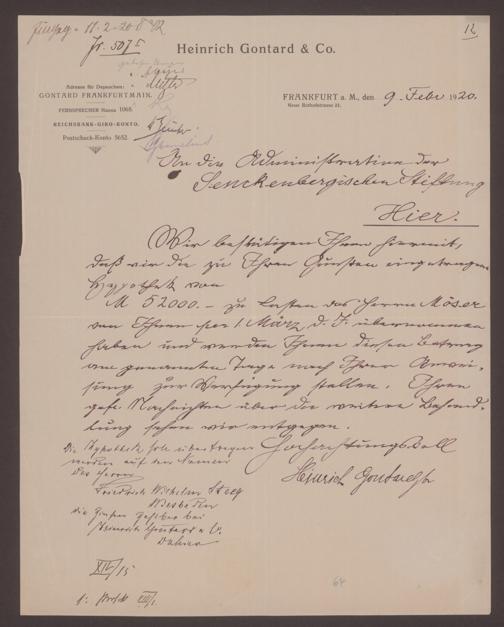 12
Heinrich Gontard & Co.
Adresse für Depeschen:
GONTARD FRANKFURTMAIN.
FERNSPRECHER Hansa 1068.
REICHSBANK-GIRO-KONTO.
Postscheck-Konto 5652.
FRANKFURT a. M., den 9. Febr 1920.
Neue Rothofstrasse
An die Administration der
Senckenbergischen Stiftung
Hier.
Wir bestätigen Ihnen hiermit,
daß wir die zu Ihren Gunsten eingetragene
Hypothek von
M 52000.- zu Lasten des Herrn Möser
von Ihnen per 1 März d. J. übernommen
haben und werden Ihnen diesen Betrag
am genannten Tage nach Ihrer Anwei-
sung zur Verfügung stellen. Ihren
gefl. Nachrichten über die weitere Behand-
lung sehen wir entgegen.
Hochachtungsvoll
Heinrich Gontard & Co
Die Hypothek soll übertragen
werden auf den Namen
des Herrn
Friedrich Wilhelm
Wiesbaden
die Zinsen bei
Heinrich Gontard & Co.
64